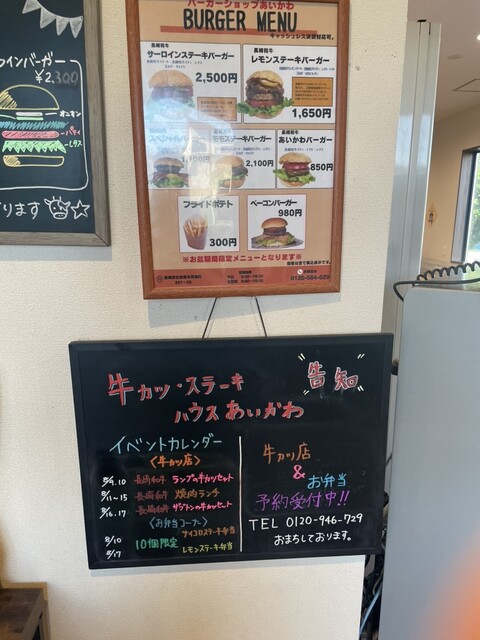 バーガーショップあいかわ
BURGER MENU
キャッシュレス決済対応可。
長崎和牛
サーロインステーキバーガー
2,500円
長崎和牛
レモンステーキバーガー
1,650円
長崎和牛
2,100円
長崎和牛
あいかわバーガー
850円
フライドポテト
300円
ベーコンバーガー
980円
※お盆期間限定メニューとなります※
インバーガー
¥2,300
オニオン
パティ
レタス
ります
牛カツ・ステーキ
ハウス あいかわ
告知
イベントカレンダー
〈牛カツ店〉
8/9.10 長崎和牛 ランプの牛カツセット
8/11~15 長崎和牛 焼肉ランチ
8/16.17 長崎和牛 ザブトンの牛カツセット
〈お弁当コーナー〉
8/10 10個限定 サイコロステーキ弁当
8/17 レモンステーキ弁当
牛カツ店
&
お弁当
予約受付中!!
TEL 0120-946-729
おまちしております。